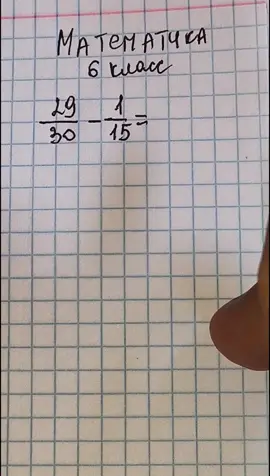 Математика
6 класс
29/30 - 1/15 =